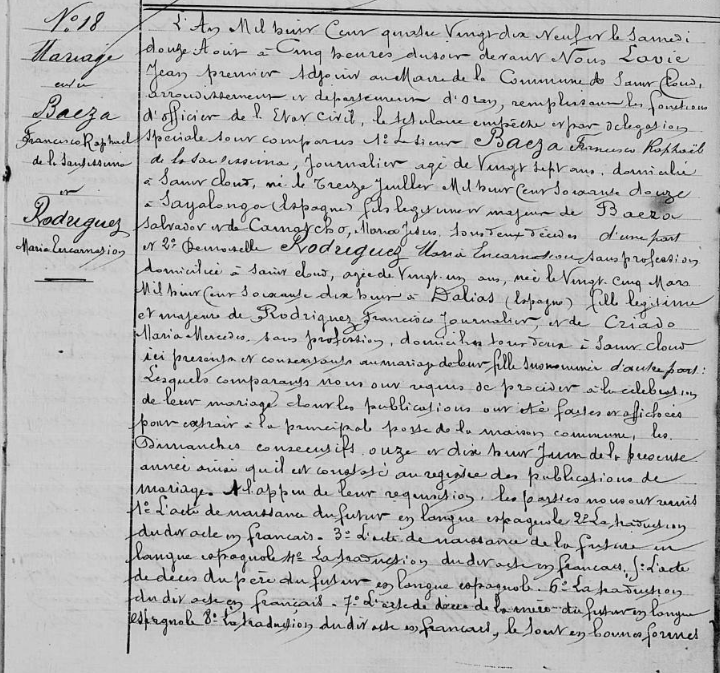 N° 18
Mariage
entre
Baeza
Francisco Raphaël
de la Santissima
et
Rodriguez
Maria Encarnasion
L'An Mil huit Cent quatre Vingt dix Neuf et le Samedi
douze Aout à Cinq heures du soir devant Nous Lavie
Jean premier Adjoint au Maire de la Commune de Saint Cloud,
arrondissement et département d'Oran, remplissant les fonctions
d'officier de l'Etat Civil, le titulaire empêché et par délégation
spéciale sont comparus 1° Le sieur Baeza Francisco Raphaël
de la Santissima, Journalier agé de Vingt sept ans, domicilié
à Saint Cloud, né le Treize Juillet Mil huit Cent Soixante douze
à Sayalongo (Espagne) fils légitime et majeur de Baeza
Salvador et de Camatcho, Maria Jesus, tous deux décédés d'une part
et 2° Demoiselle Rodriguez Maria Encarnation sans profession
domiciliée à Saint Cloud, agée de Vingt-un ans, née le Vingt Cinq Mars
Mil huit Cent Soixante dix huit à Dalias (Espagne) fille légitime
et majeure de Rodriguez Francisco Journalier, et de Criado
Maria Mercedes, sans profession, domiciliés tous deux à Saint Cloud
ici présents et consentants au mariage de leur fille susnommée d'autre part:
Lesquels comparants nous ont requis de procéder à la célébration
de leur mariage dont les publications ont été faites et affichées
par extrait à la principale porte de la maison commune, les
Dimanches consecutifs onze et dix huit Juin de la présente
année ainsi qu'il est constaté au registre des publications de
mariage. A l'appui de leur requisition, les parties nous ont remis
1° L'acte de naissance du futur en langue espagnole 2° La traduction
du dit acte en français. 3° L'acte de naissance de la future en
langue espagnole 4° La traduction du dit acte en français, 5° L'acte
de décès du père du futur en langue espagnole. 6° La traduction
du dit acte en français. 7° L'acte de décès de la mère du futur en langue
espagnole 8° La traduction du dit acte en français, le tout en bonnes formes